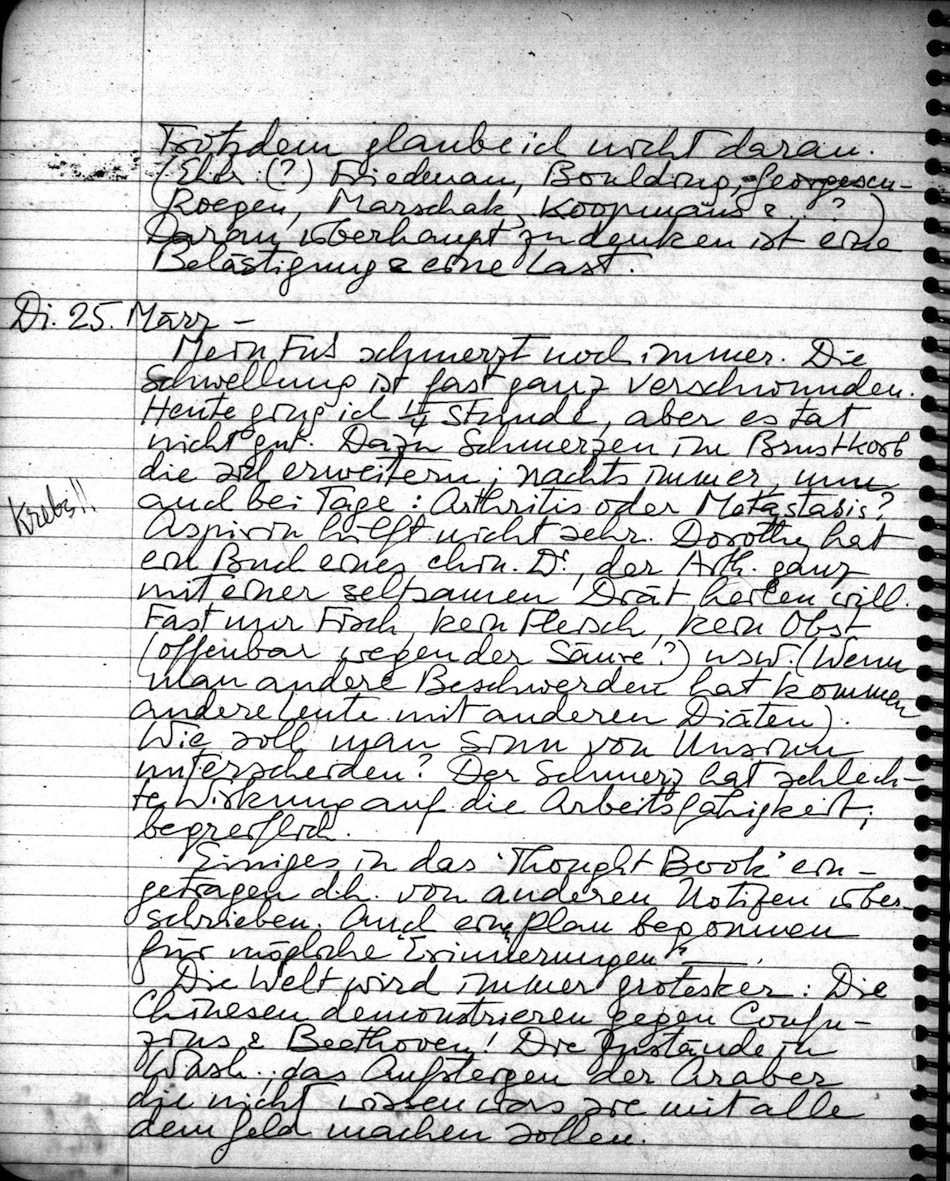 Trotzdem glaube ich nicht daran.
(Ehr. (?) Friedman, Boulding, Georgescu-
Roegen, Marschak, Koopmans & .. ? )
Daran überhaupt zu denken ist eine
Belästigung & eine Last.
Di. 25. März –
Mein Fuß schmerzt noch immer. Die
Schwellung ist fast ganz verschwunden.
Heute ging ich 1/4 Stunde, aber es tat
nicht gut. Dazu Schmerzen im Brustkorb
die sich erweitern; nachts immer, nun
auch bei Tage: Arthritis oder Metastasis?
Krebs!!
Aspirin hilft nicht sehr. Dorothy hat
ein Buch eines chin. Dr., der Arth. ganz
mit einer seltsamen Diät heilen will.
Fast nur Fisch, kein Fleisch, kein Obst
(offenbar wegen der Säure?) usw. (Wenn
man andere Beschwerden hat kommen
andere Leute mit anderen Diäten).
Wie soll man Sinn von Unsinn
unterscheiden? Der Schmerz hat schlech-
te Wirkung auf die Arbeitsfähigkeit;
begreiflich.
Einiges in das 'Thought Book' ein-
getragen d.h. von anderen Notizen über-
schrieben. Auch ein Plan begonnen
für mögliche "Erinnerungen" ——.
Die Welt wird immer grotesker: Die
Chinesen demonstrieren gegen Confu-
zius & Beethoven! Die Zustände in
Wash., das Aufsteigen der Araber
die nicht wissen was sie mit alle
dem Geld machen sollen.